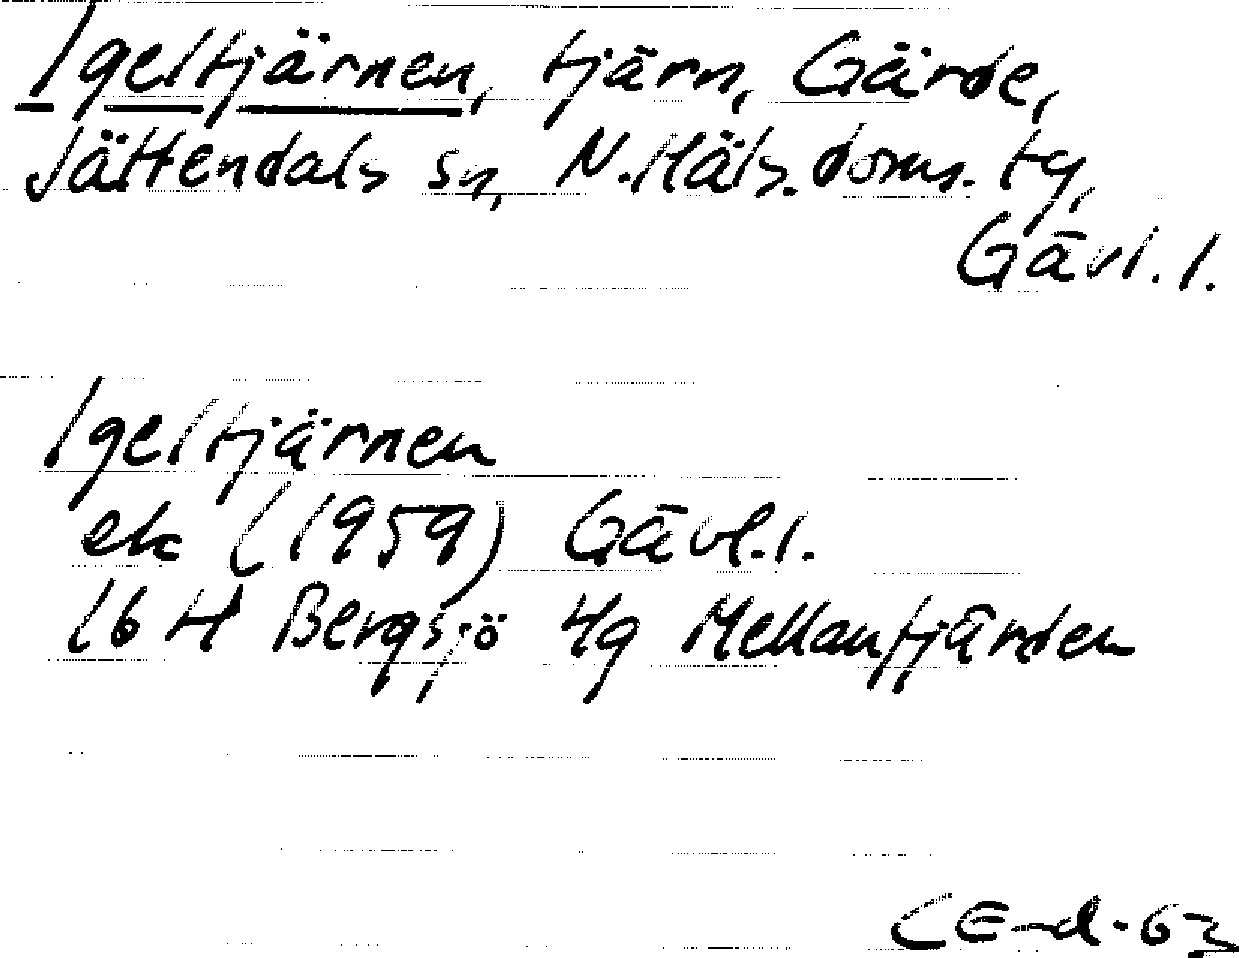 Igeltjärnen, tjärn, Gärde,
Jättendals sn, N. Häls. doms. tg,
Gävl. l.
Igeltjärnen
ek (1959) Gävl. l.
16 H Bergsjö 4g Mellanfjärden
CE-d-63